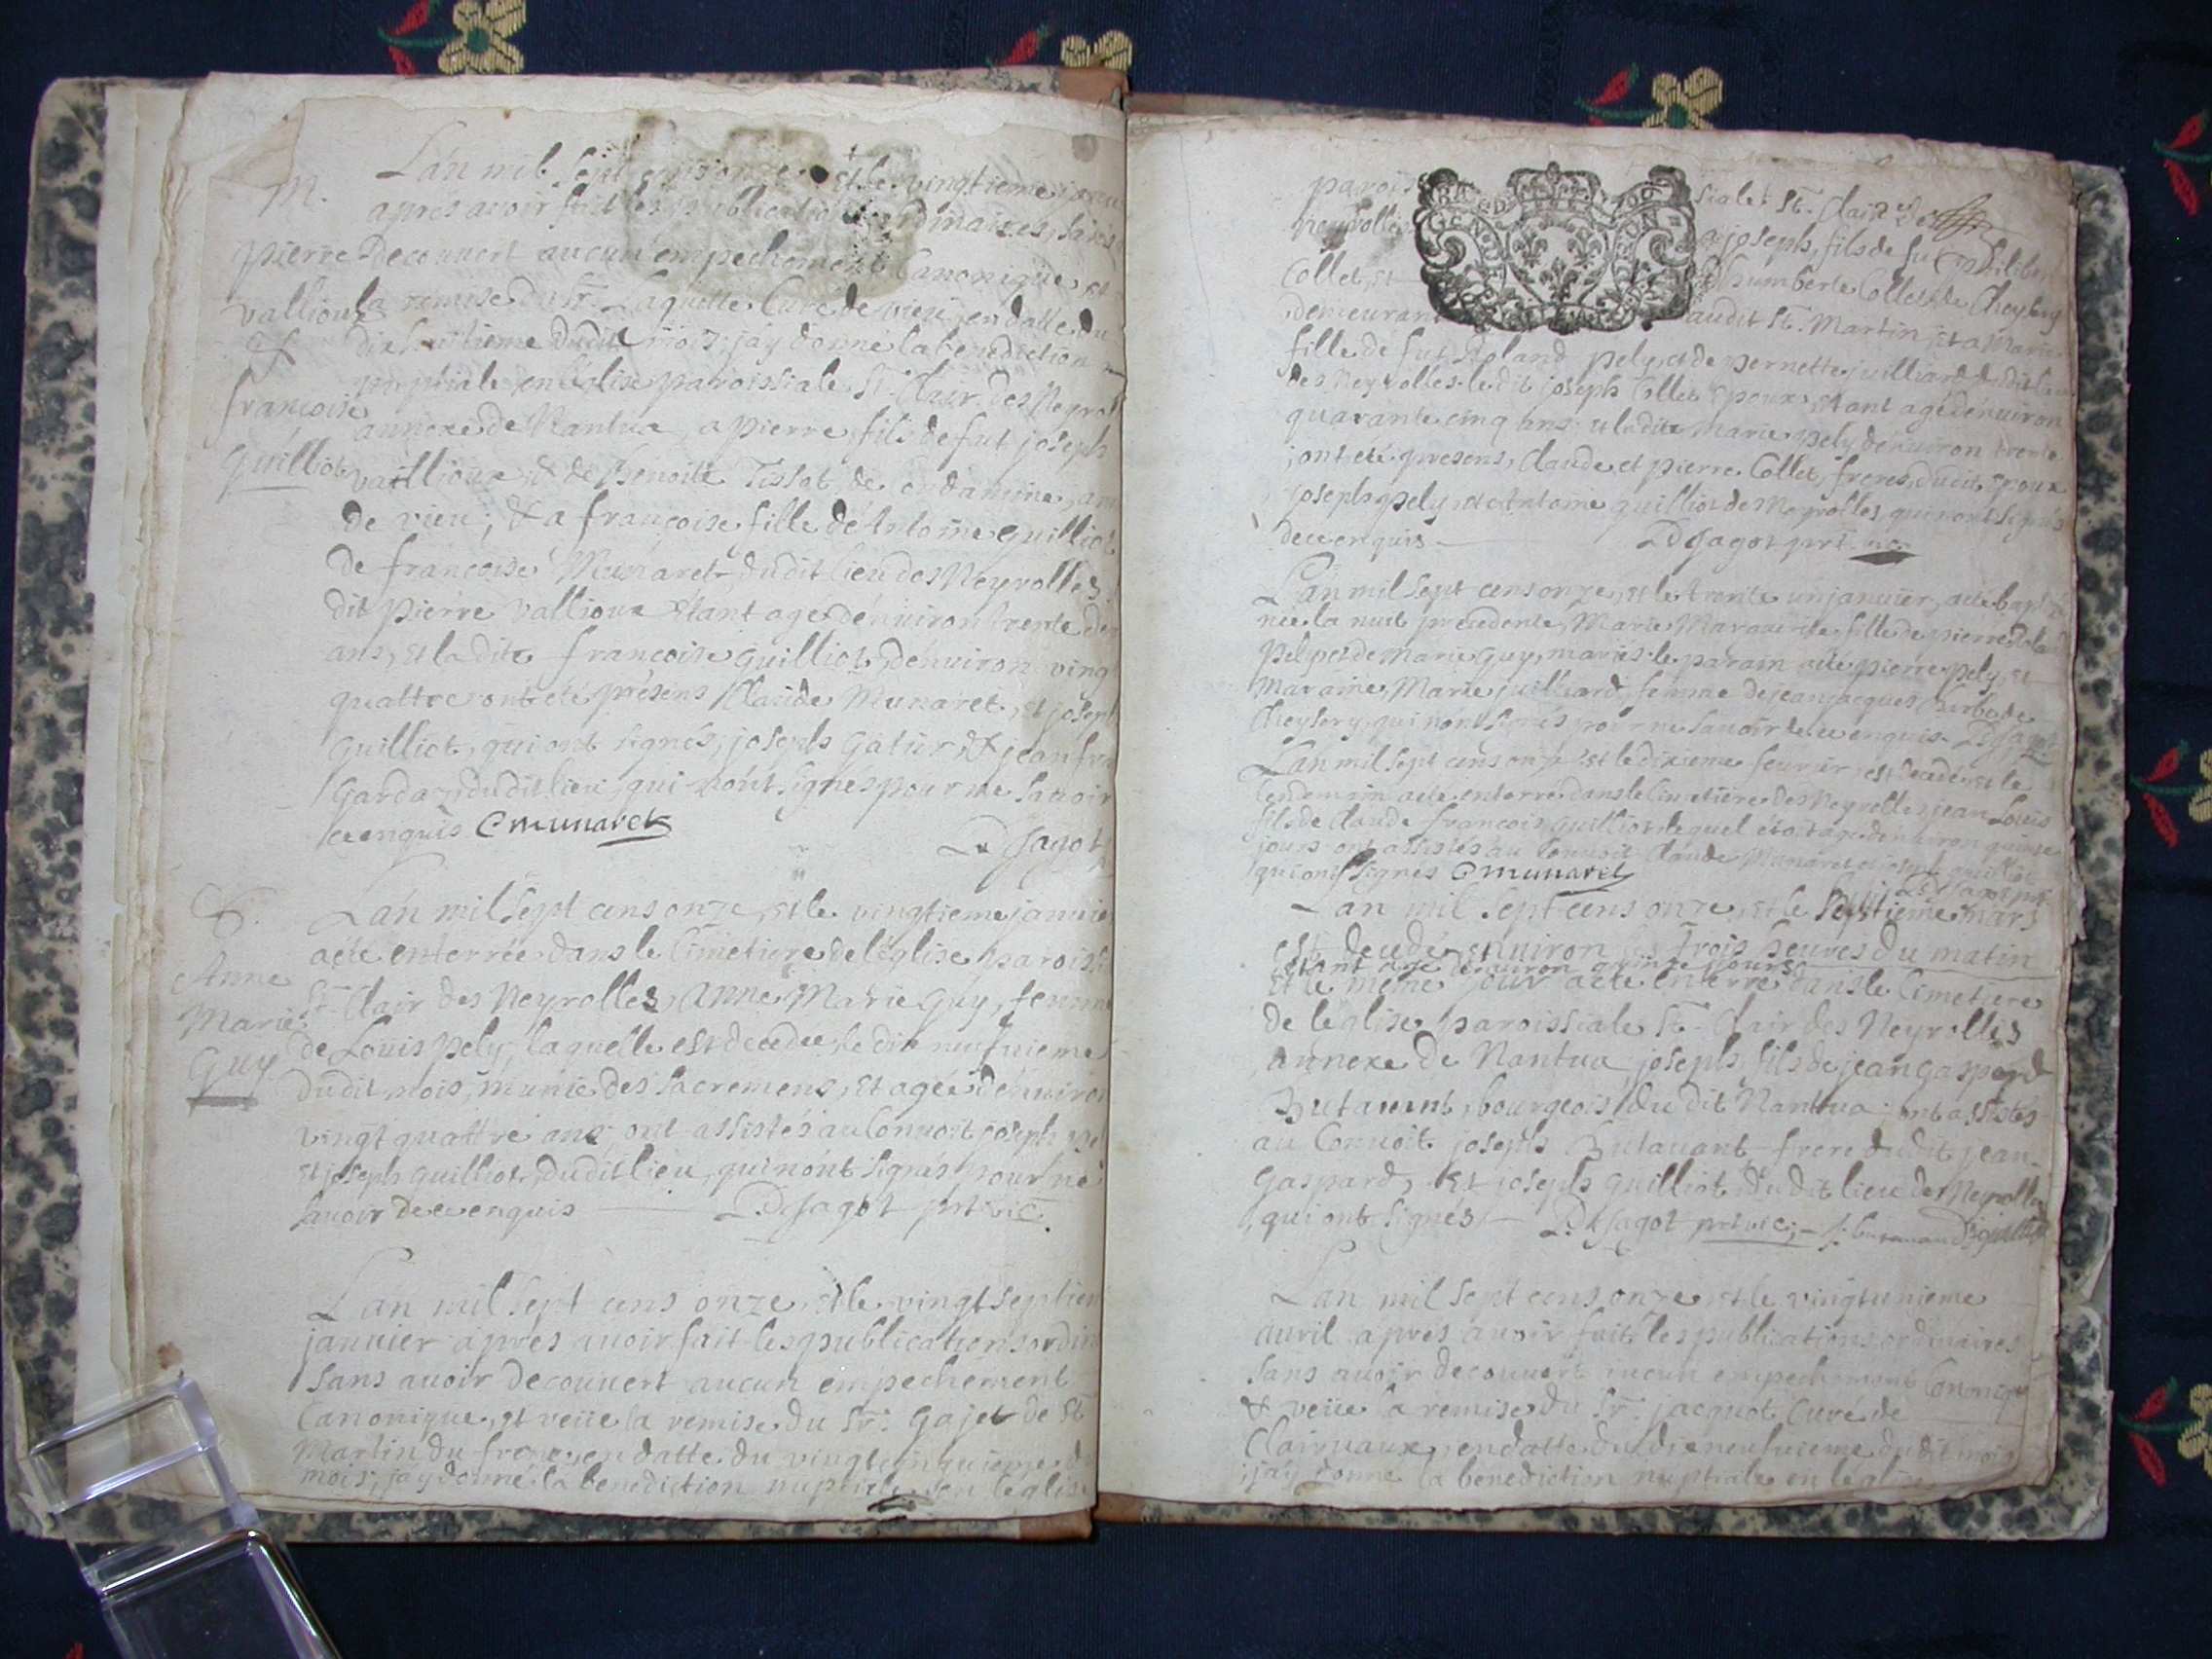 M.
Pierre
Vallioux
&
françoise
Guilliot
L'an mil sept cens onze et le vingtieme janu
aprés avoir fait les publications ordinaires, sans
decouvert aucun empechement Canonique et
la remise du Sr. Laquette Curé de vieu en datte du
dix huitieme dudit mois; j'ay donné la benediction
nuptiale en léglise paroissiale St. Clair des Neyrol
annexe de Nantua, a pierre, fils de fut joseph
vaillioux, & de Benoite Tissot de
de vieu; & a françoise fille de Antoine guilliot
de francoise Munaret dudit lieu des Neyrolles
dit pierre vallioux étant agé dénuiron trente
ans, et la dite francoise guilliot, dénuiron ving
quattre ont été présens Claude Munaret, et joseph
guilliot, qui ont signés, joseph gatier, & jean fra
Gardaz, dudit lieu, qui n'ont signés pour ne savoir
ce enquis C munaret
D Jagot
S.
Anne
Marie
Guy
L'an mil sept cens onze, et le vingtieme janvie
a été enterrée dans le Cimetiere de léglise paroissi
St. Clair des Neyrolles, anne, Marie Guy, femme
de Louis pely, laquelle est decedée le dix neufuieme
dudit mois, munie des sacremens, et agée dénuiron
vingt quattre ans; ont assistés au Convoit joseph pe
et joseph guilliot, dudit lieu, qui n'ont signés pour ne
savoir de ce enquis D Jagot prt. vic.
L'an mil sept cens onze, et le vingt septiem
janvier aprés avoir fait les publications ordin
sans avoir decouvert aucun empechement
Canonique, et veüe la remise du Sr. Gajet de St
Martin du frene, en datte du vingt cinquieme d
mois, jay donné la benediction nuptiale en léglise
parois siale St. Clair des
Neyrolles a joseph, fils de fut philibe
Collet, et humberte Collet de Cheyla
demeurant audit St. Martin, et a Marie
fille de fut Roland pely, et de pernette juilliard, dudit lieu
des Neyrolles. le dit joseph Collet epoux, étant agé dénuiron
quarante cinq ans, et la dite Marie pely dénuiron trente
; ont été presens, Claude et pierre Collet, freres, dudit epoux
joseph pely, et Antoine guilliot des Neyrolles, qui n'ont signés
de ce enquis D Jagot prt. vic.
L'an mil sept cens onze, et le trente un janvier, a été bapt
née la nuit precedente, Marie Marguerite, fille de pierre
pely et de Marie Guy, mariés. le parain a été pierre pely, et
Maraine, Marie juilliard, femme de jean jacques Barbe de
Cheylery, qui n'ont signés pour ne savoir de ce enquis D Jagot
L'an mil sept cens onze et le dixieme feurier, est decedé, et le
lendemain a été enterré dans le Cimetiere des Neyrolles jean Louis
fils de Claude francois guilliot lequel étoit agé dénuiron quinse
jours ont assistés au Convoit Claude Munaret et joseph guilliot
qui ont signés C munaret D Jagot prt.
L'an mil sept cens onze, et le septieme mars
est decedé enuiron les trois heures du matin
étant agé dénuiron quinze jours
et le même jour a été enterré dans le Cimetiere
de léglise paroissiale St. Clair des Neyrolles
annexe de Nantua joseph, fils de jean gaspard
Butavant, bourgeois du dit Nantua; ont assistés
au Convoit joseph Butavant frere du dit jean
Gaspard, et joseph guilliot, du dit lieu des Neyrolles
, qui ont signés D Jagot prt. vic;
L'an mil sept cens onze, et le vingtunieme
auril aprés avoir fait les publications ordinaires
sans avoir decouvert aucun empechement Canonique
& veüe la remise du Sr. jacquot Curé de
Clairvaux, en datte du dixneufuieme dudit mois
; j'ay donné la benediction nuptiale en léglise